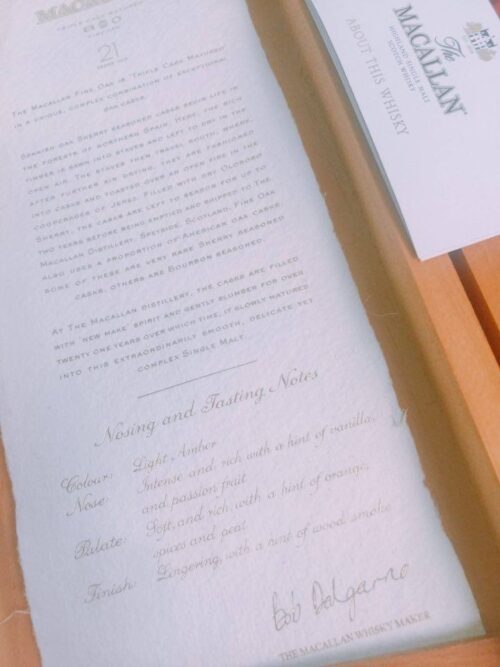 MACALLAN
TRIPLE CASK MATURED
21
YEARS OLD
THE MACALLAN FINE OAK IS 'TRIPLE CASK MATURED'
IN A UNIQUE, COMPLEX COMBINATION OF EXCEPTIONAL
OAK CASKS.
SPANISH OAK SHERRY SEASONED CASKS BEGIN LIFE IN
THE FORESTS OF NORTHERN SPAIN. HERE, THE RICH
TIMBER IS SAWN INTO STAVES AND LEFT TO DRY IN THE
OPEN AIR. THE STAVES THEN TRAVEL SOUTH, WHERE
AFTER FURTHER AIR DRYING, THEY ARE FASHIONED
INTO CASKS AND TOASTED OVER AN OPEN FIRE IN THE
COOPERAGES OF JEREZ. FILLED WITH DRY OLOROSO
SHERRY, THE CASKS ARE LEFT TO SEASON FOR UP TO
TWO YEARS BEFORE BEING EMPTIED AND SHIPPED TO THE
MACALLAN DISTILLERY, SPEYSIDE, SCOTLAND. FINE OAK
ALSO USES A PROPORTION OF AMERICAN OAK CASKS.
SOME OF THESE ARE VERY RARE SHERRY SEASONED
CASKS, OTHERS ARE BOURBON SEASONED.
AT THE MACALLAN DISTILLERY, THE CASKS ARE FILLED
WITH 'NEW MAKE' SPIRIT AND GENTLY SLUMBER FOR OVER
TWENTY ONE YEARS OVER WHICH TIME, IT SLOWLY MATURES
INTO THIS EXTRAORDINARILY SMOOTH, DELICATE YET
COMPLEX SINGLE MALT.
Nosing and Tasting Notes
Colour: Light Amber
Nose: Intense and rich with a hint of vanilla,
and passion fruit
Palate: Soft, and rich, with a hint of orange,
spices and peat
Finish: Lingering, with a hint of wood smoke
Bob Dalgarno
THE MACALLAN WHISKY MAKER
The
MACALLAN®
HIGHLAND SINGLE MALT
SCOTCH WHISKY
ABOUT THIS WHISKY